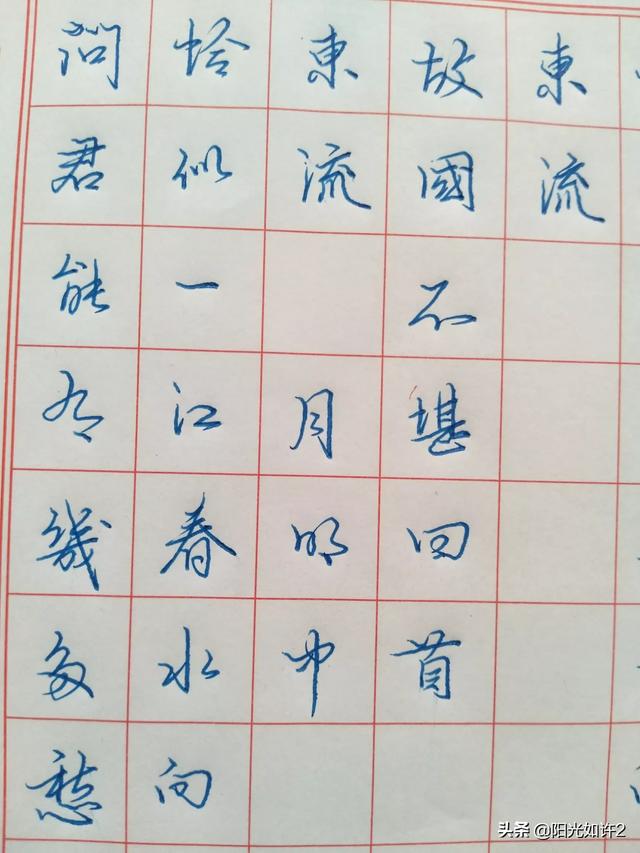 問君能有幾多愁
恰似一江春水向
東流 月明中
故國不堪回首
東流
头条 @阳光如许2